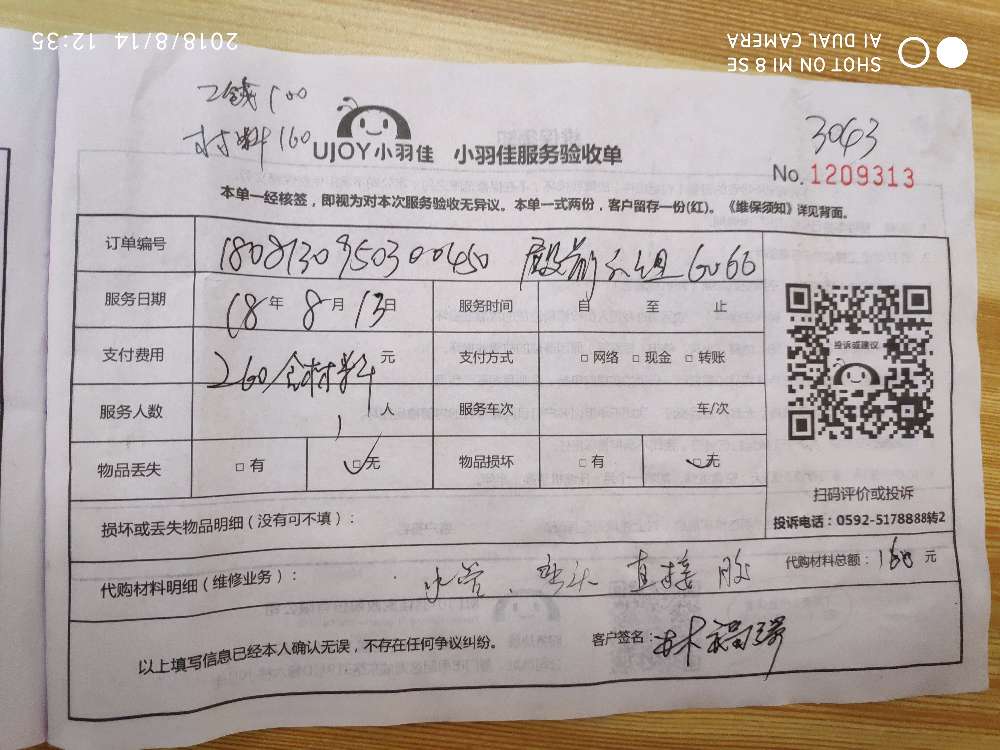 2018/8/14 12:35
SHOT ON MI 8 SE
AI DUAL CAMERA
工钱100
材料160
UJOY小羽佳 小羽佳服务验收单
3043
No.1209313
本单一经核签，即视为对本次服务验收无异议。本单一式两份，客户留存一份(红)。《维保须知》详见背面。
订单编号 1808130950300450 殿前 组 6066
服务日期 18年 8月 13日 服务时间 自 至 止
支付费用 260含材料 元 支付方式 □网络 □现金 □转账
服务人数 1人 服务车次 车/次
物品丢失 □有 □无 物品损坏 □有 □无
投诉或建议
扫码评价或投诉
投诉电话：0592-5178888转2
损坏或丢失物品明细（没有可不填）：
代购材料明细（维修业务）： 水管、弯头 直接 胶 代购材料总额：160元
以上填写信息已经本人确认无误，不存在任何争议纠纷。 客户签名：林